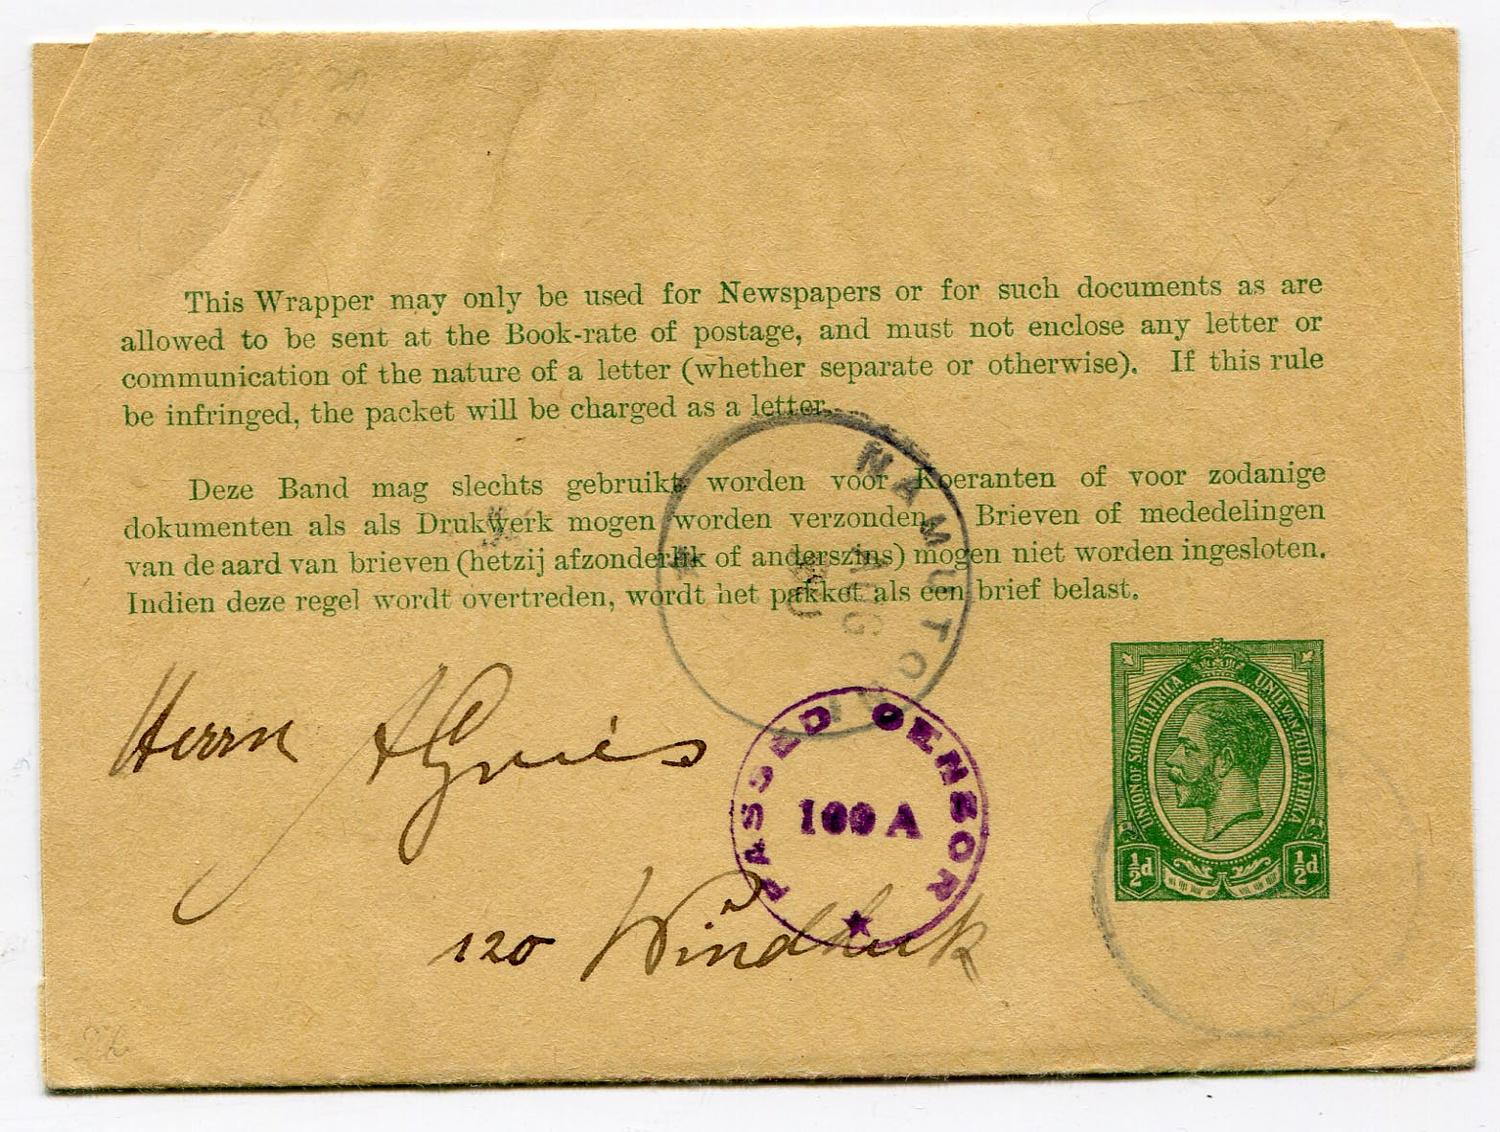 This Wrapper may only be used for Newspapers or for such documents as are
allowed to be sent at the Book-rate of postage, and must not enclose any letter or
communication of the nature of a letter (whether separate or otherwise). If this rule
be infringed, the packet will be charged as a letter.
Deze Band mag slechts gebruikt worden voor Koeranten of voor zodanige
dokumenten als als Drukwerk mogen worden verzonden. Brieven of mededelingen
van de aard van brieven (hetzij afzonderlik of anderszins) mogen niet worden ingesloten.
Indien deze regel wordt overtreden, wordt het pakket als een brief belast.
NAMUTONI
AUG
UNION OF SOUTH AFRICA UNIE VAN ZUID AFRIKA
½d ½d
Herrn
PASSED CENSOR
169 A
120 Windhuk